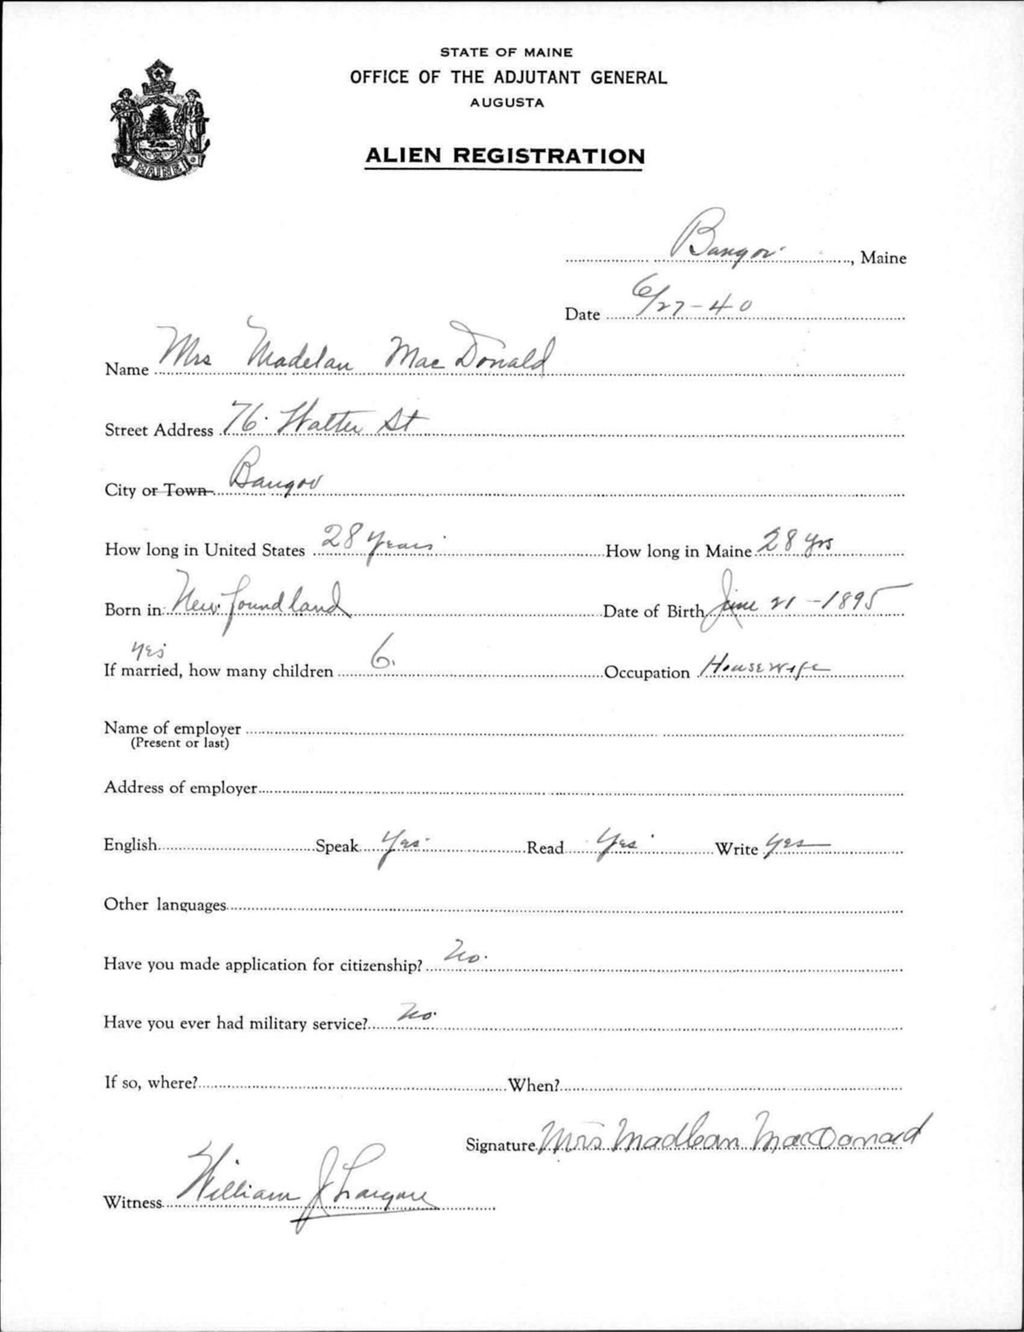 STATE OF MAINE
OFFICE OF THE ADJUTANT GENERAL
AUGUSTA
ALIEN REGISTRATION
MAINE
Bangor, Maine
Date 6/27-40
Name Mrs Madelan MacDonald
Street Address 76 Walter St
City or Town Bangor
How long in United States 28 years How long in Maine 28 yrs
Born in Newfoundland Date of Birth June 21 - 1895
yes
If married, how many children 6. Occupation Housewife
Name of employer
(Present or last)
Address of employer
English Speak Yes Read Yes Write yes
Other languages
Have you made application for citizenship? No.
Have you ever had military service? No.
If so, where? When?
Signature Mrs Madlean MacDonard
Witness William J